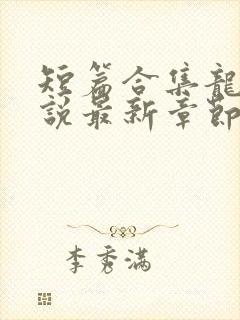 短篇合集龍
說最新章節
李秀滿